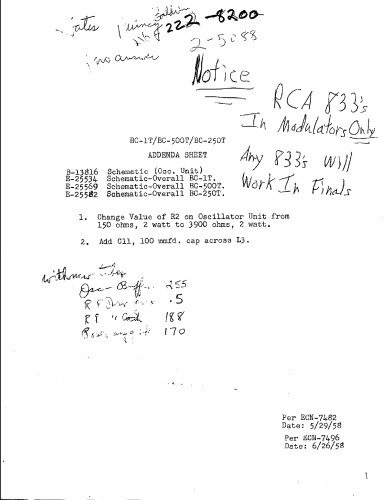 Gates Quincy
222-8200
no answer
2-5088
Notice
RCA 833's
In Modulators Only
Any 833's Will
Work In Finals
BC-1T/BC-500T/BC-250T
ADDENDA SHEET
B-13816 Schematic (Osc. Unit)
E-25534 Schematic-Overall BC-1T.
E-25569 Schematic-Overall BC-500T.
E-25582 Schematic-Overall BC-250T.
1. Change Value of R2 on Oscillator Unit from
150 ohms, 2 watt to 3900 ohms, 2 watt.
2. Add C11, 100 mmfd. cap across L3.
with new
Osc- Buff 255
.5
188
170
Per ECN-7482
Date: 5/29/58
Per ECN-7496
Date: 6/26/58
1